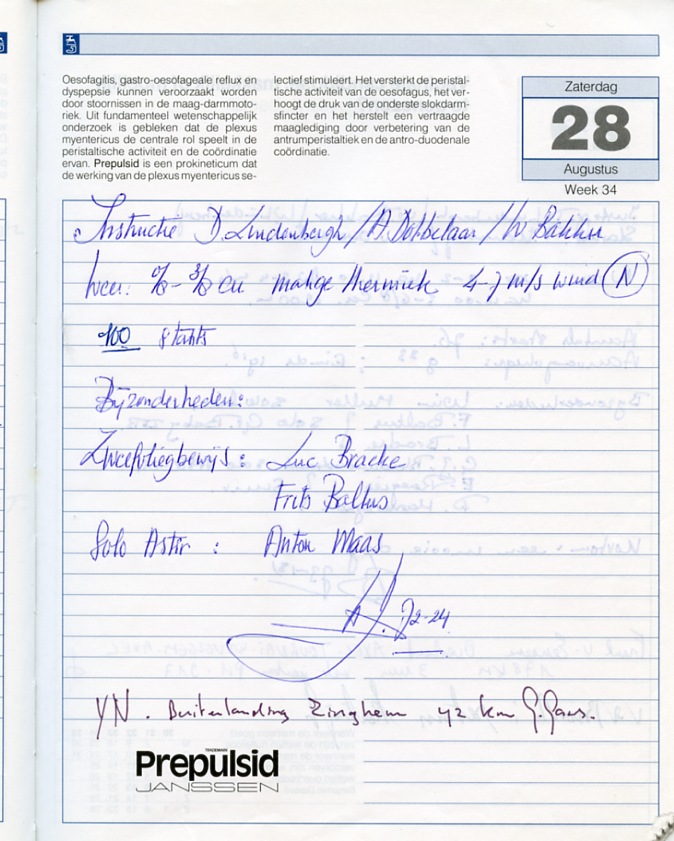 Oesofagitis, gastro-oesofageale reflux en
dyspepsie kunnen veroorzaakt worden
door stoornissen in de maag-darmmoto-
riek. Uit fundamenteel wetenschappelijk
onderzoek is gebleken dat de plexus
myentericus de centrale rol speelt in de
peristaltische activiteit en de coördinatie
ervan. Prepulsid is een prokineticum dat
de werking van de plexus myentericus se-
lectief stimuleert. Het versterkt de peristal-
tische activiteit van de oesofagus, het ver-
hoogt de druk van de onderste slokdarm-
sfincter en het herstelt een vertraagde
maaglediging door verbetering van de
antrumperistaltiek en de antro-duodenale
coördinatie.
Zaterdag
28
Augustus
Week 34
Instructie D. Lindenbergh / A. Dobbelaar / W Bakker
Weer: cu matige thermiek 4-7 m/s wind (N)
100 starts
Bijzonderheden:
Zweefvliegbewijs: Luc Bracke
Frits Baltus
Solo Astir : Anton Maas
72-24
YN. Buitenlanding Zinghem 42 km G. Gaus.
TRADEMARK
Prepulsid
JANSSEN